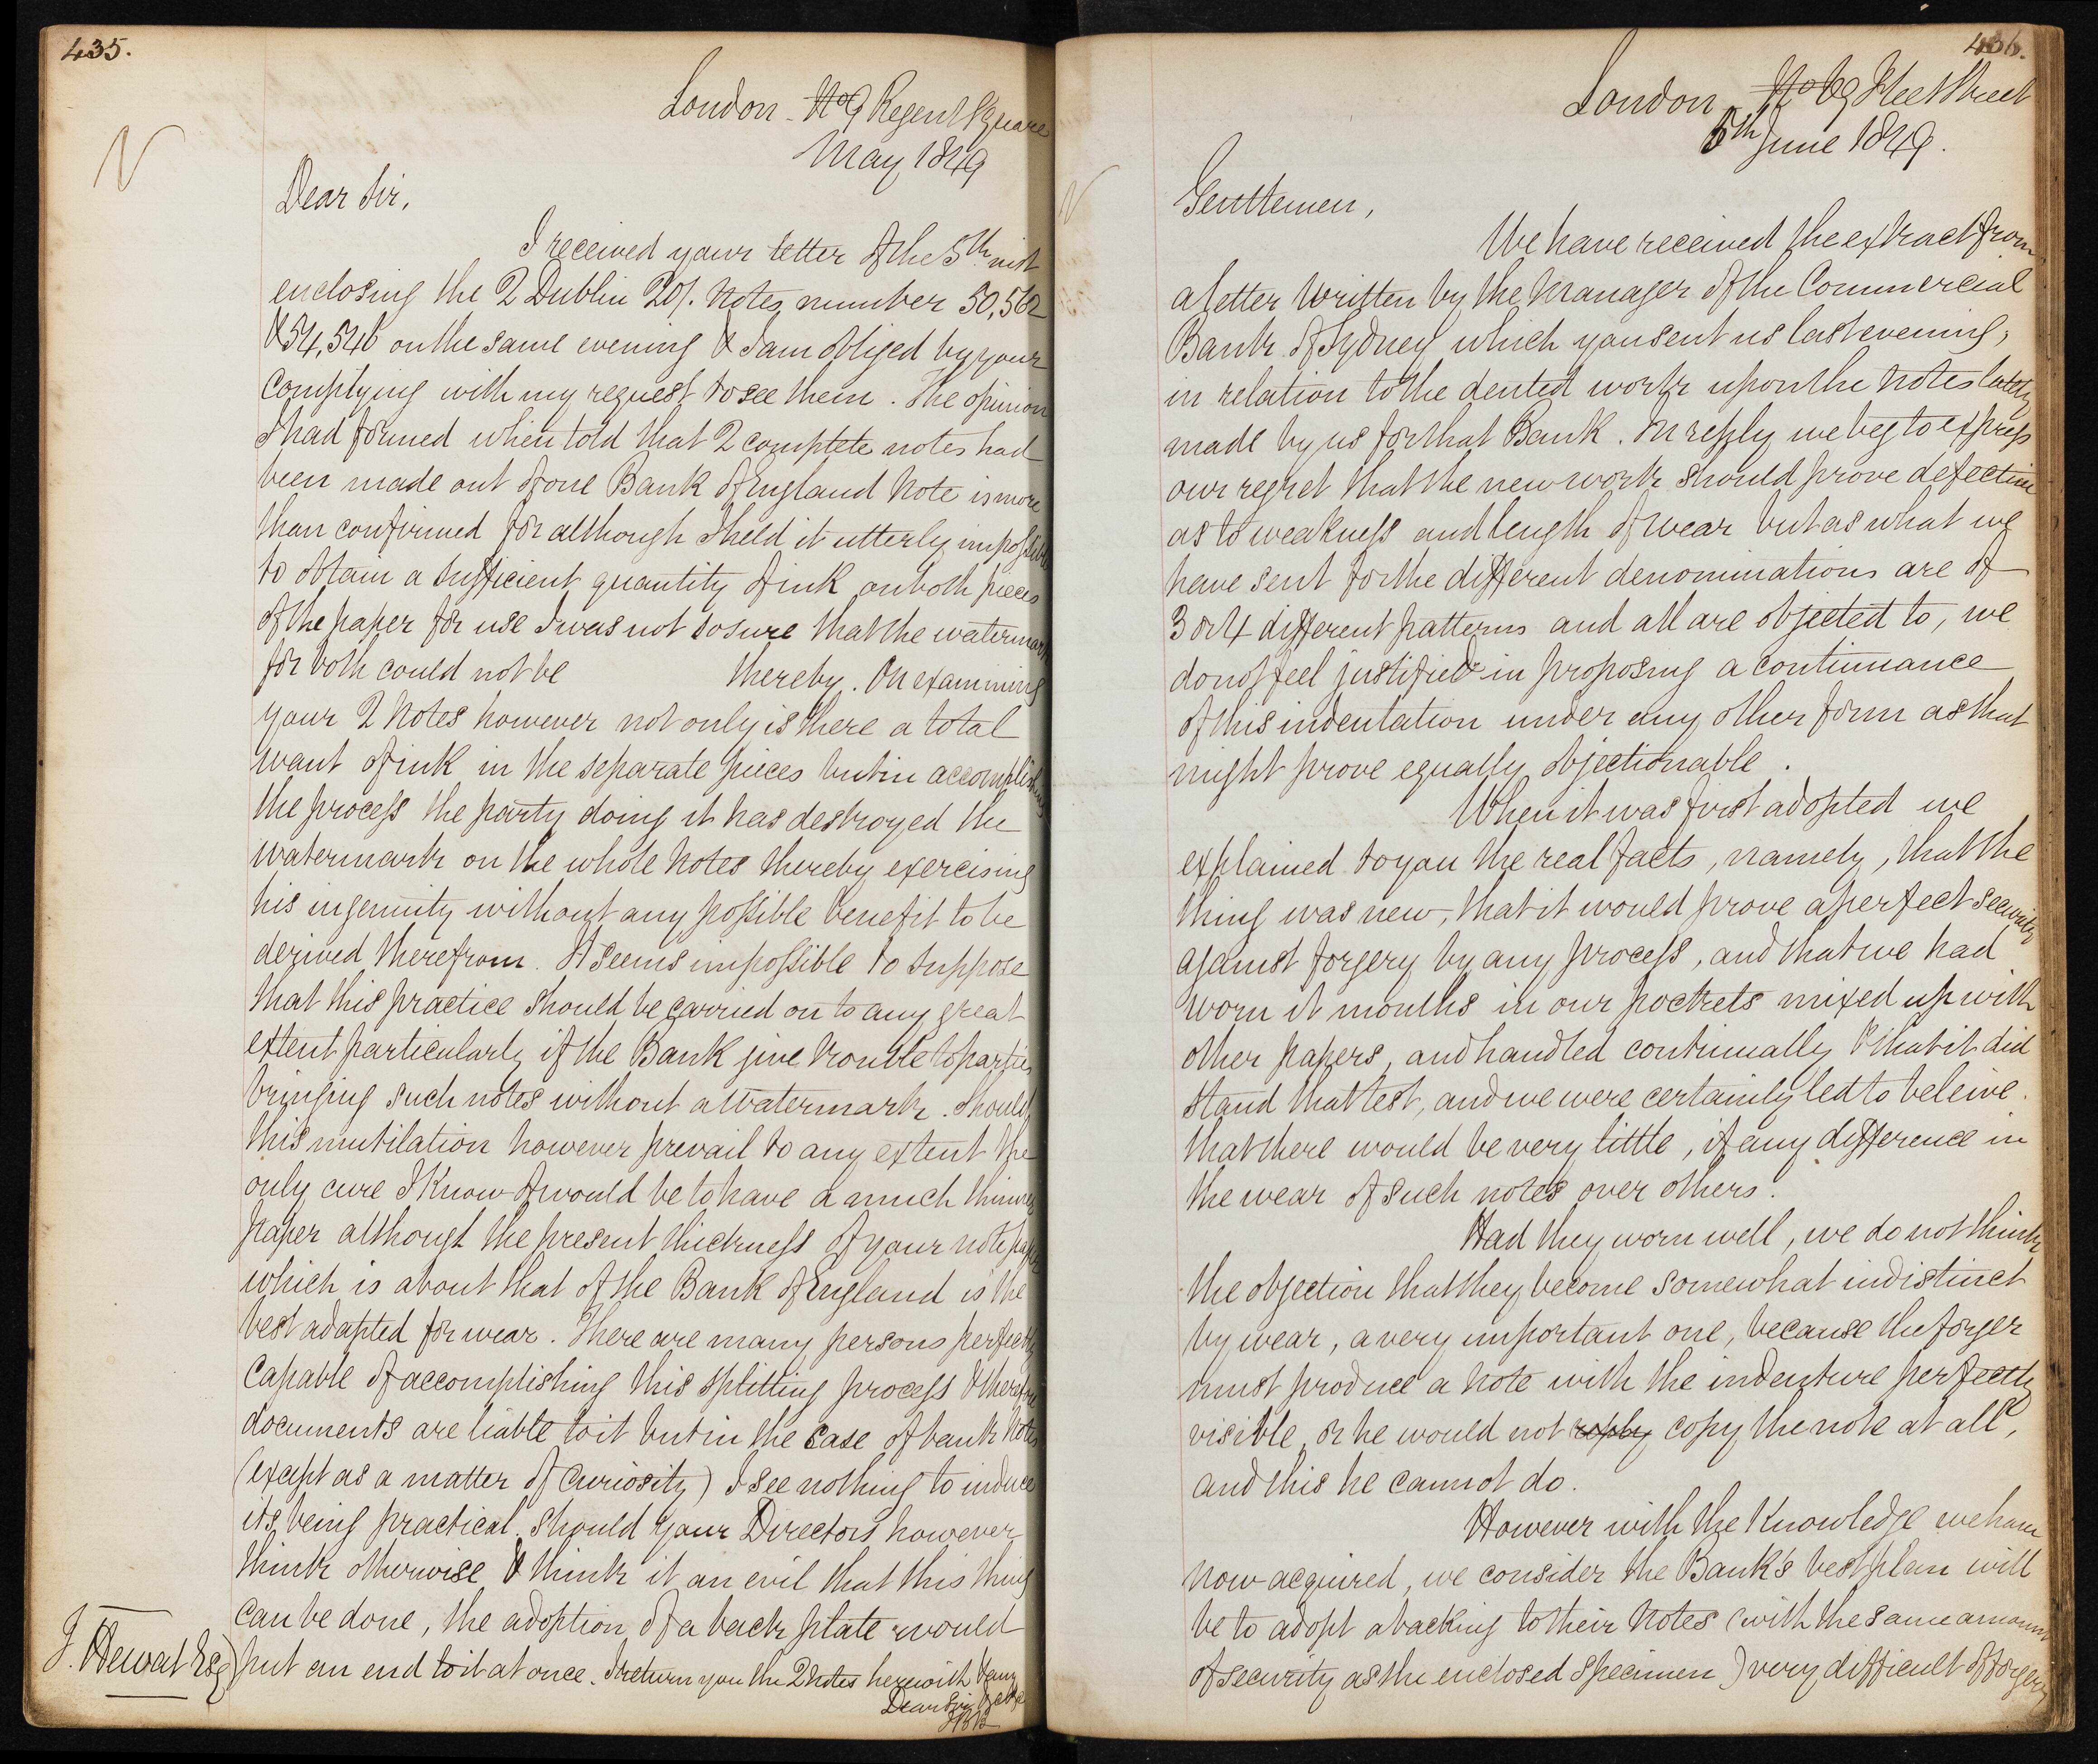 435.
London - No 9 Regent Square
May 1849
N
Dear Sir,
I received your letter of the 5th inst
enclosing the 2 Dublin 20/. Notes, number 50,562
& 54,546 on the same evening & I am obliged by your
complying with my request to see them. The opinion
I had formed when told that 2 complete notes had
been made out of one Bank of England Note is more
than confirmed for although I held it utterly impossible
to obtain a sufficient quantity of ink on both pieces
of the paper for use I was not so sure that the watermark
for both could not be thereby. On examining
your 2 Notes however not only is there a total
want of ink in the separate pieces but in accomplishing
the process the party doing it has destroyed the
watermark on the whole Notes thereby exercising
his ingenuity without any possible benefit to be
derived therefrom. It seems impossible to suppose
that this practice should be carried on to any great
extent particularly if the Bank give trouble to parties
bringing such notes without a watermark. Should
this mutilation however prevail to any extent the
only cure I know of would be to have a much thinner
paper although the present thickness of your note paper
which is about that of the Bank of England is the
best adapted for wear. There are many persons perfectly
capable of accomplishing this splitting process & therefore
documents are liable to it but in the case of bank Notes
(except as a matter of curiosity) I see nothing to induce
its being practical. Should your Directors however
think otherwise & think it an evil that this thing
can be done, the adoption of a back plate would
J. Hewat Esq) put an end to it at once. I return you the 2 Notes herewith & am
Dear Sir
436.
London - No 69 Fleet Street
5th June 1849.
N
Gentlemen,
We have received the extract from
a letter written by the Manager of the Commercial
Bank of Sydney which you sent us last evening,
in relation to the dented work upon the Notes lately
made by us for that Bank. In reply we beg to express
our regret that the new work should prove defective
as to weakness and length of wear but as what we
have sent for the different denominations are of
3 or 4 different patterns and all are objected to, we
do not feel justified in proposing a continuance
of this indentation under any other form as that
might prove equally objectionable.
When it was first adopted we
explained to you the real facts, namely, that the
thing was new, that it would prove a perfect security
against forgery by any process, and that we had
worn it months in our pockets mixed up with
other papers, and handled continually & that it did
stand that test, and we were certainly led to beleive
that there would be very little, if any difference in
the wear of such notes over others.
Had they worn well, we do not think
the objection that they become somewhat indistinct
by wear, a very important one, because the forger
must produce a Note with the indenture perfectly
visible, or he would not reply copy the note at all,
and this he cannot do.
However with the knowledge we have
now acquired, we consider the Bank's best plan will
be to adopt a backing to their Notes (with the same amount
of security as the enclosed specimen) very difficult of forgery